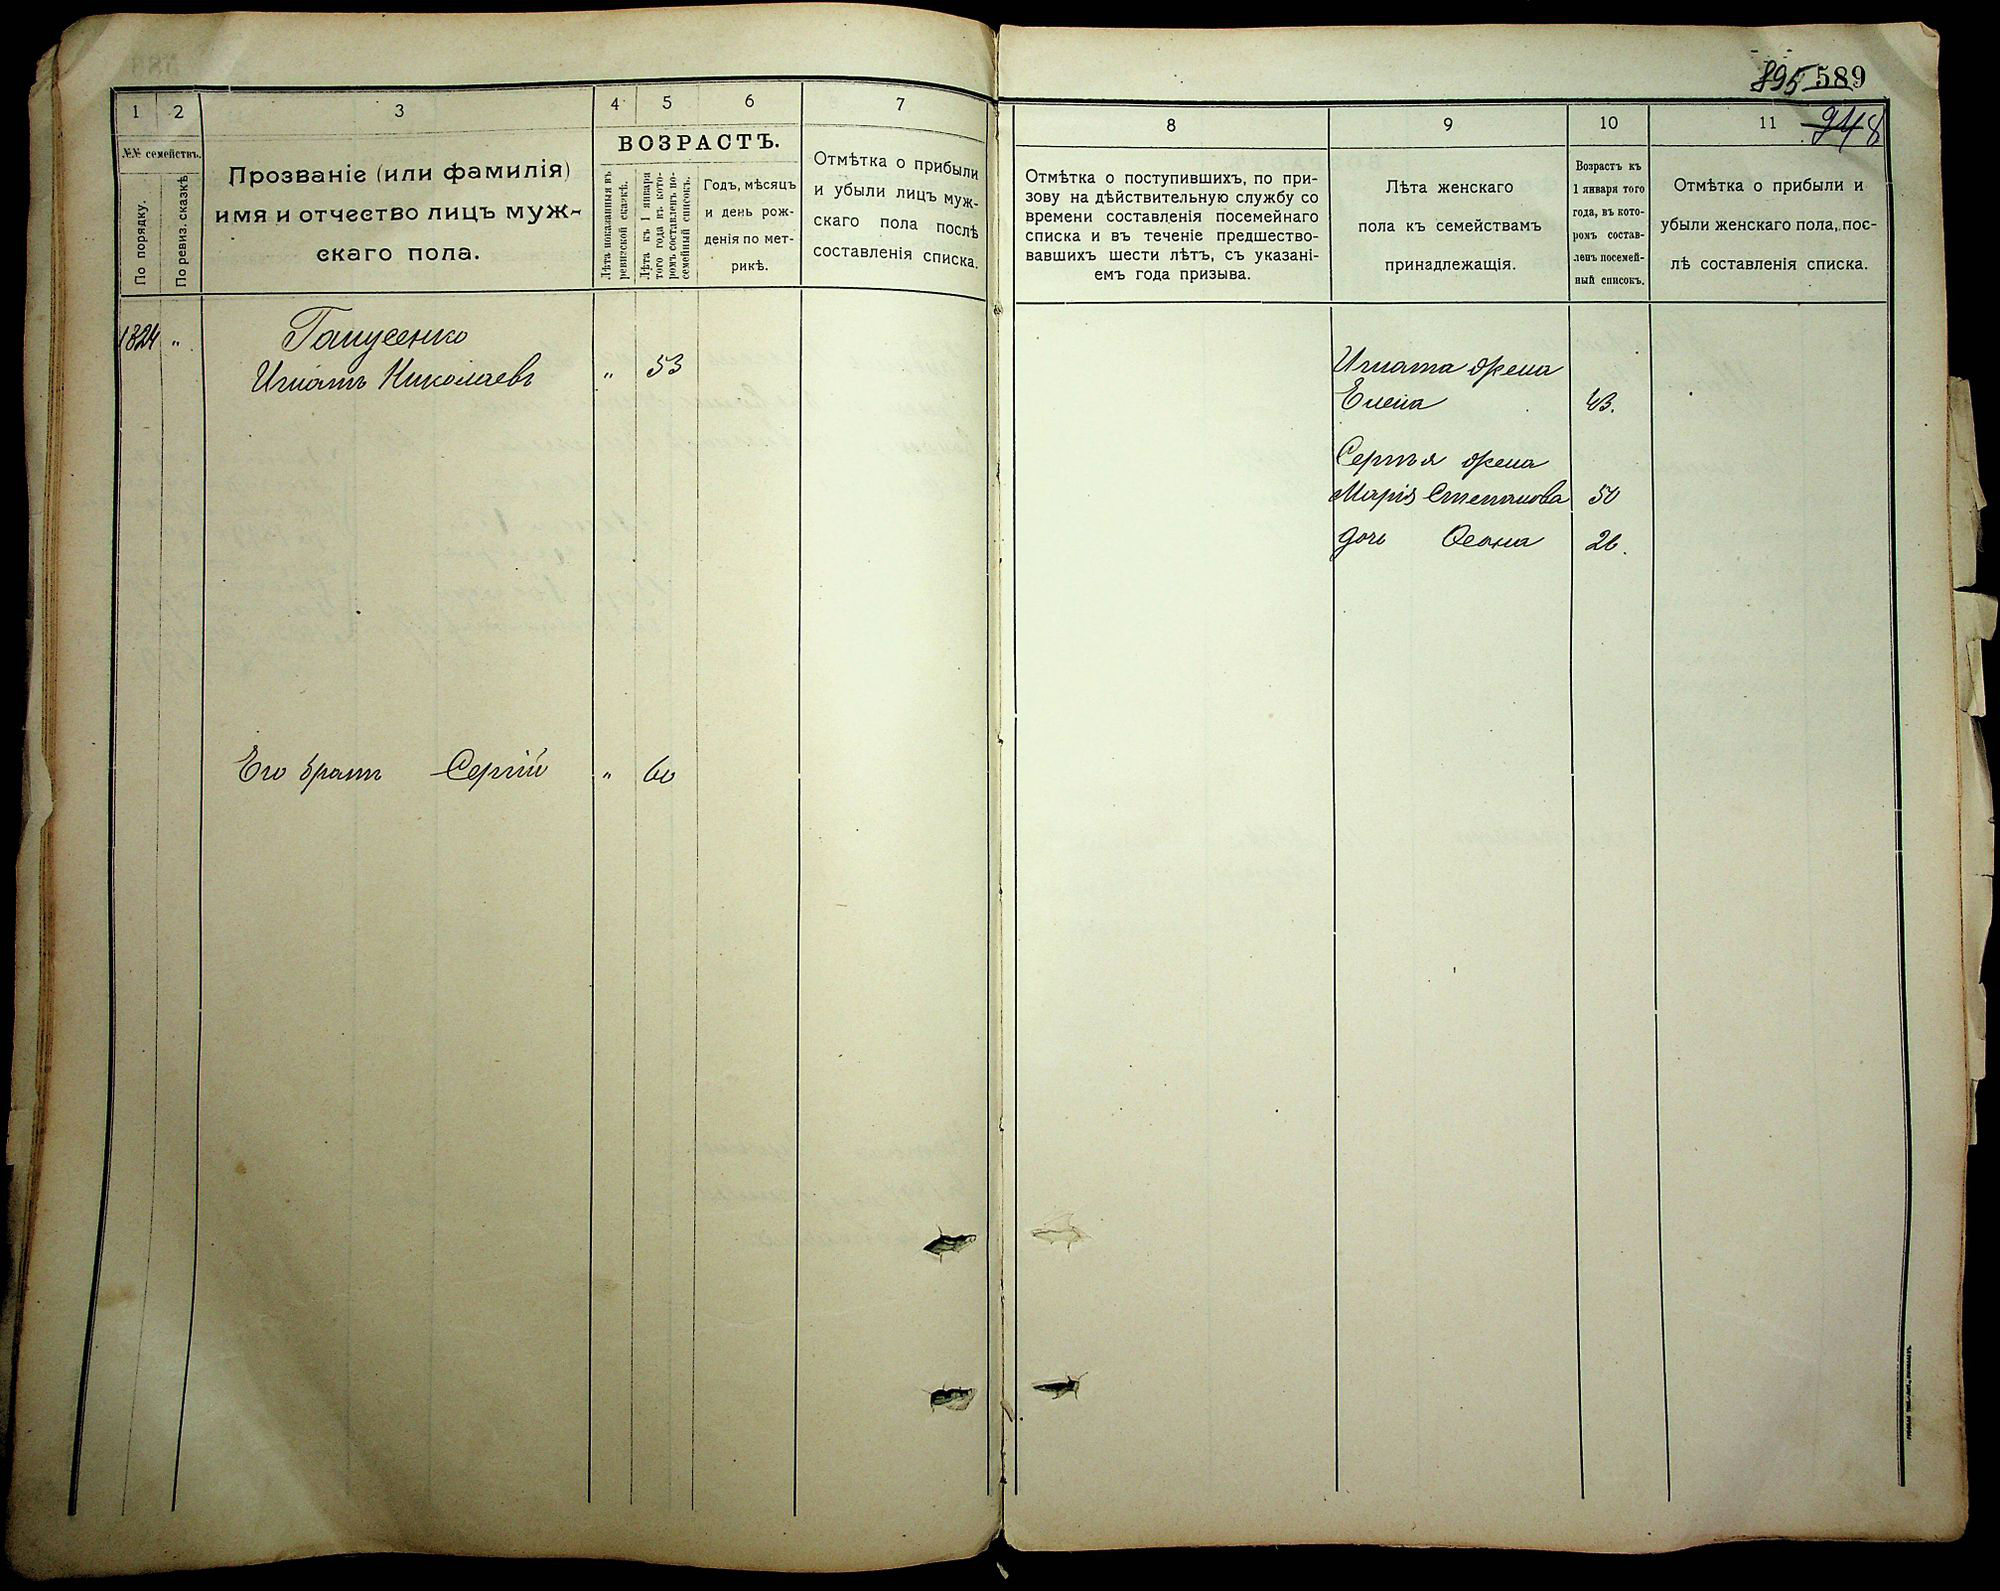 895 589
948
1
2
3
4
5
6
7
№№ семействъ.
По порядку.
По ревиз. сказкѣ.
Прозваніе (или фамилія)
имя и отчество лицъ муж-
скаго пола.
ВОЗРАСТЪ.
Лѣта показанныя въ
ревизской сказкѣ.
Лѣта къ 1 января
того года къ кото-
ромъ составленъ по-
семейный списокъ.
Годъ, мѣсяцъ
и день рож-
денія по мет-
рикѣ.
Отмѣтка о прибыли
и убыли лицъ муж-
скаго пола послѣ
составленія списка.
8
9
10
11
Отмѣтка о поступившихъ, по при-
зову на дѣйствительную службу со
времени составленія посемейнаго
списка и въ теченіе предшество-
вавшихъ шести лѣтъ, съ указані-
емъ года призыва.
Лѣта женскаго
пола къ семействамъ
принадлежащія.
Возрастъ къ
1 января того
года, въ кото-
ромъ состав-
ленъ посемей-
ный списокъ.
Отмѣтка о прибыли и
убыли женскаго пола, пос-
лѣ составленія списка.
1824 "
Игнатъ Николаевъ " 53
Его братъ Сергій " 60
Игната жена
Елена 43.
Сергѣя жена
Марія Степанова 50
дочь 26.